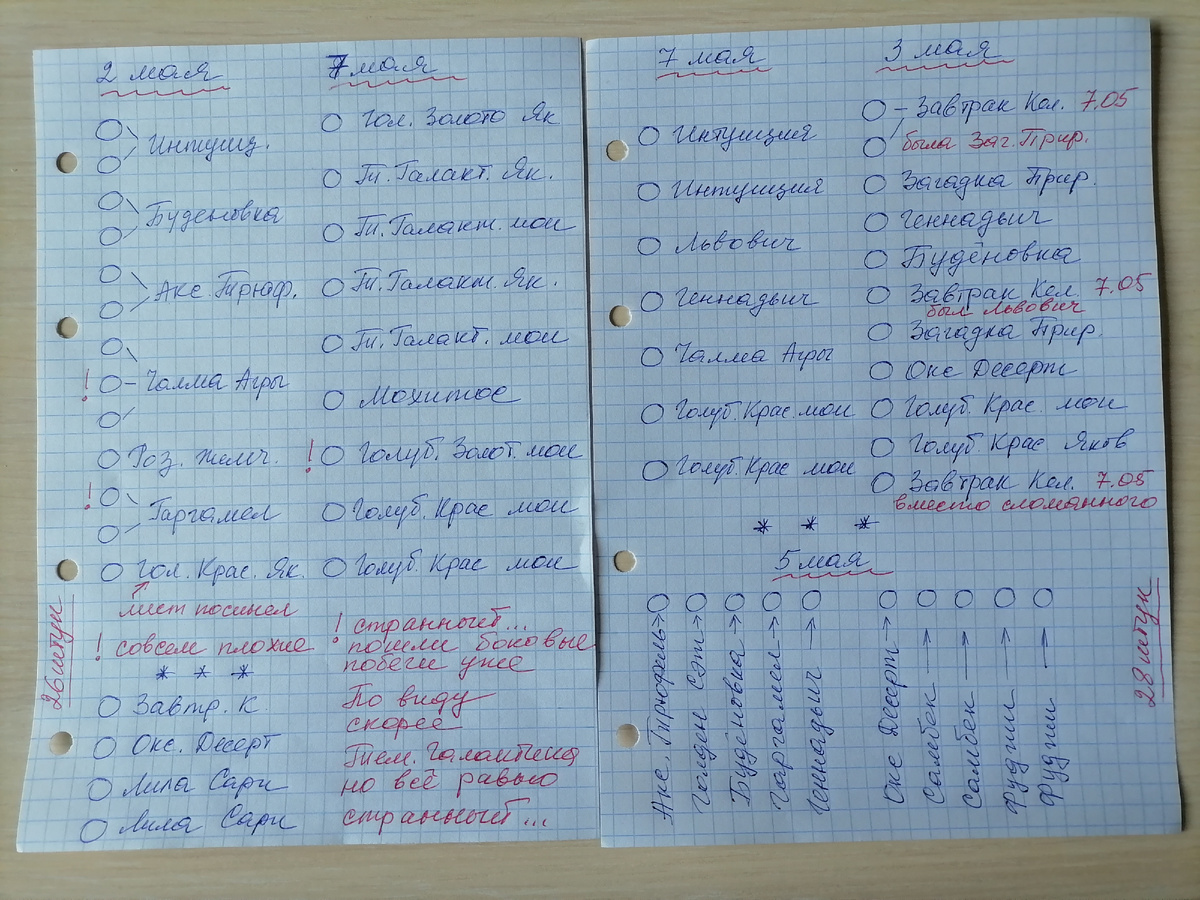 2 мая
Интуиц.
Будёновка
Акс. Трюф.
! – Чалма Агры
Роз. жемч.
! Гаргамел
Гол. Крас. Як.
лист посинел
! совсем плохие
* * *
Завтр. К.
Окс. Десерт
Лила Сари
Лила Сари
26 штук
7 мая
Гол. Золото Як
Т. Галакт. Як.
Т. Галакт. мои
Т. Галакт. Як.
Т. Галакт. мои
Мохитос
! Голуб. Золот. мои
Голуб. Крас мои
Голуб. Крас мои
! странный...
пошли боковые
побеги уже
По виду
скорее
Тем. Галактика
но всё равно
странный...
7 мая
Интуиция
Интуиция
Львович
Геннадьич
Чалма Агры
Голуб. Крас. мои
Голуб. Крас мои
3 мая
– Завтрак Кол. 7.05
была Заг. Прир.
Загадка Прир.
Геннадьич
Будёновка
Завтрак Кол. 7.05
был Львович
Загадка Прир.
Окс Десерт
Голуб. Крас. мои
Голуб Крас Яков
Завтрак Кол. 7.05
вместо сломанного
* * *
5 мая
Акс. Трюфель→
Голден Сэт→
Будёновка→
Гаргамел→
Геннадьич→
Окс Десерт→
Самбек→
Самбек→
Фуджи→
Фуджи→
28 штук